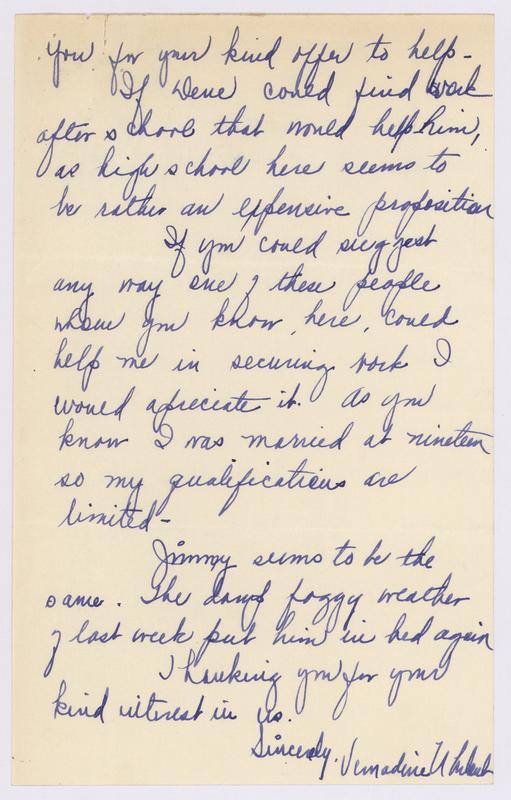 you for your kind offer to help-
If Dene could find work
after school that would help him,
as high school here seems to
be rather an expensive proposition
If you could suggest
any way one of these people
whom you know, here, could
help me in securing work I
would apreciate it. As you
know I was married at nineteen
so my qualifications are
limited-
Jimmy seems to be the
same. The damp foggy weather
of last week put him in bed again
Thanking you for your
kind interest in us.
Sincerely,
Vernadine